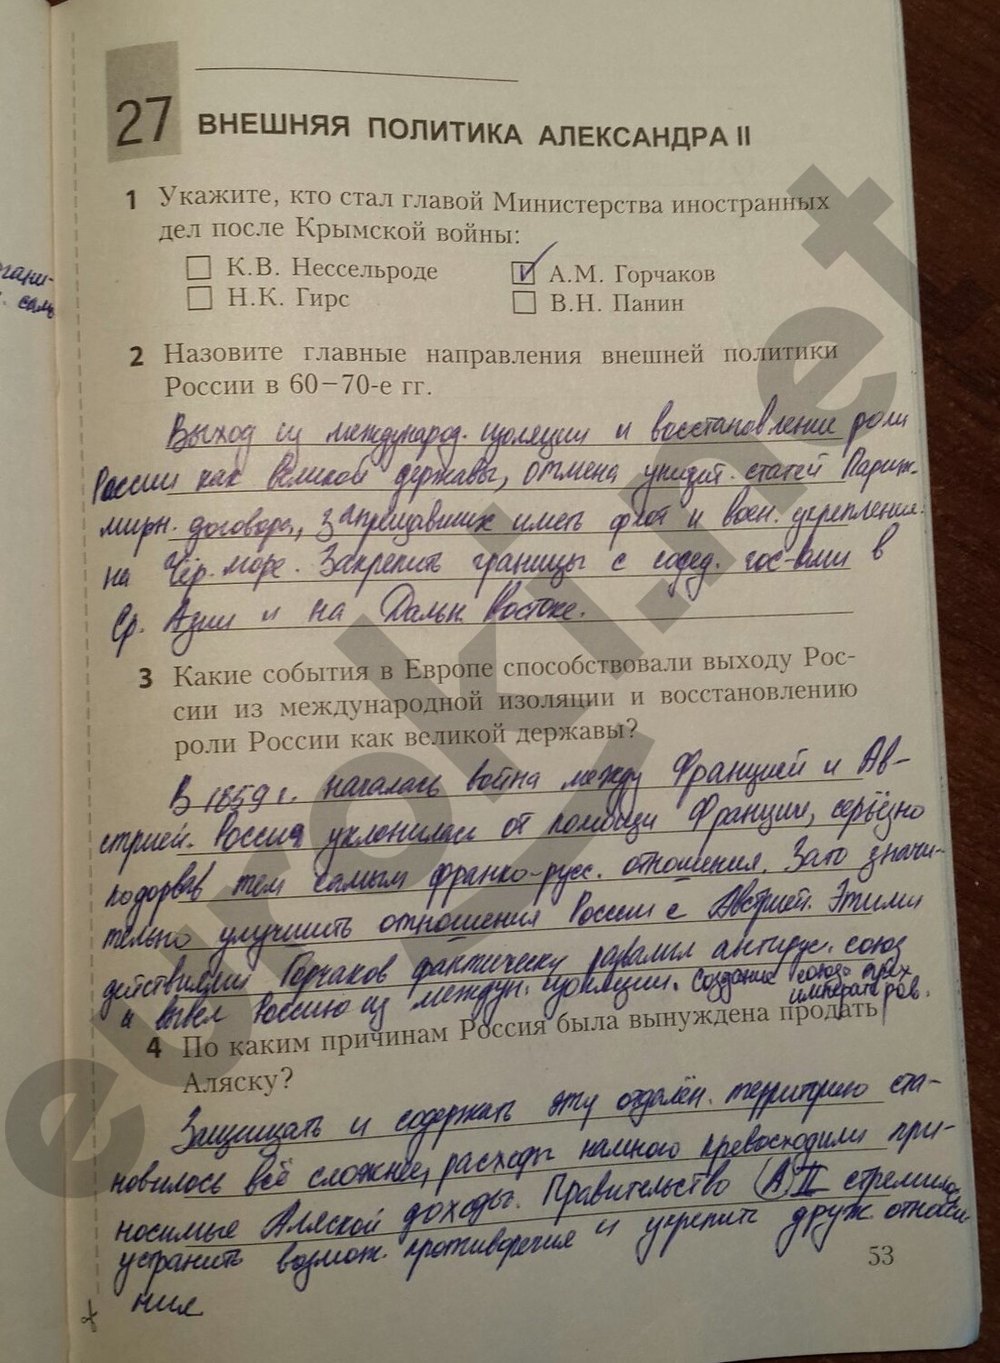 27 ВНЕШНЯЯ ПОЛИТИКА АЛЕКСАНДРА II
1 Укажите, кто стал главой Министерства иностранных
дел после Крымской войны:
К.В. Нессельроде
V А.М. Горчаков
Н.К. Гирс
В.Н. Панин
2 Назовите главные направления внешней политики
России в 60–70-е гг.
Выход из международ. изоляции и восстановление роли
России как великой державы, отмена унизит. статей Париж.
мирн. договора, запрещавших иметь флот и воен. укрепления
на Чёр. море. Закрепить границы с сосед. гос-вами в
Ср. Азии и на Дальн. Востоке.
3 Какие события в Европе способствовали выходу Рос-
сии из международной изоляции и восстановлению
роли России как великой державы?
В 1859 г. началась война между Францией и Ав-
стрией. Россия уклонилась от помощи Франции, серьёзно
подорвав тем самым франко-русс. отношения. Зато значи-
тельно улучшить отношения России с Австрией. Этими
действиями Горчаков фактически развалил антирус. союз
и вывел Россию из междун. изоляции. Создание союза трёх
императоров.
4 По каким причинам Россия была вынуждена продать
Аляску?
Защищать и содержать эту отдалён. территорию ста-
новилось всё сложнее, расходы намного превосходили при-
носимые Аляской доходы. Правительство (А)II стремилось
устранить возмож. противоречия и укрепить друж. отноше
ния
53
гани-
euroki.net